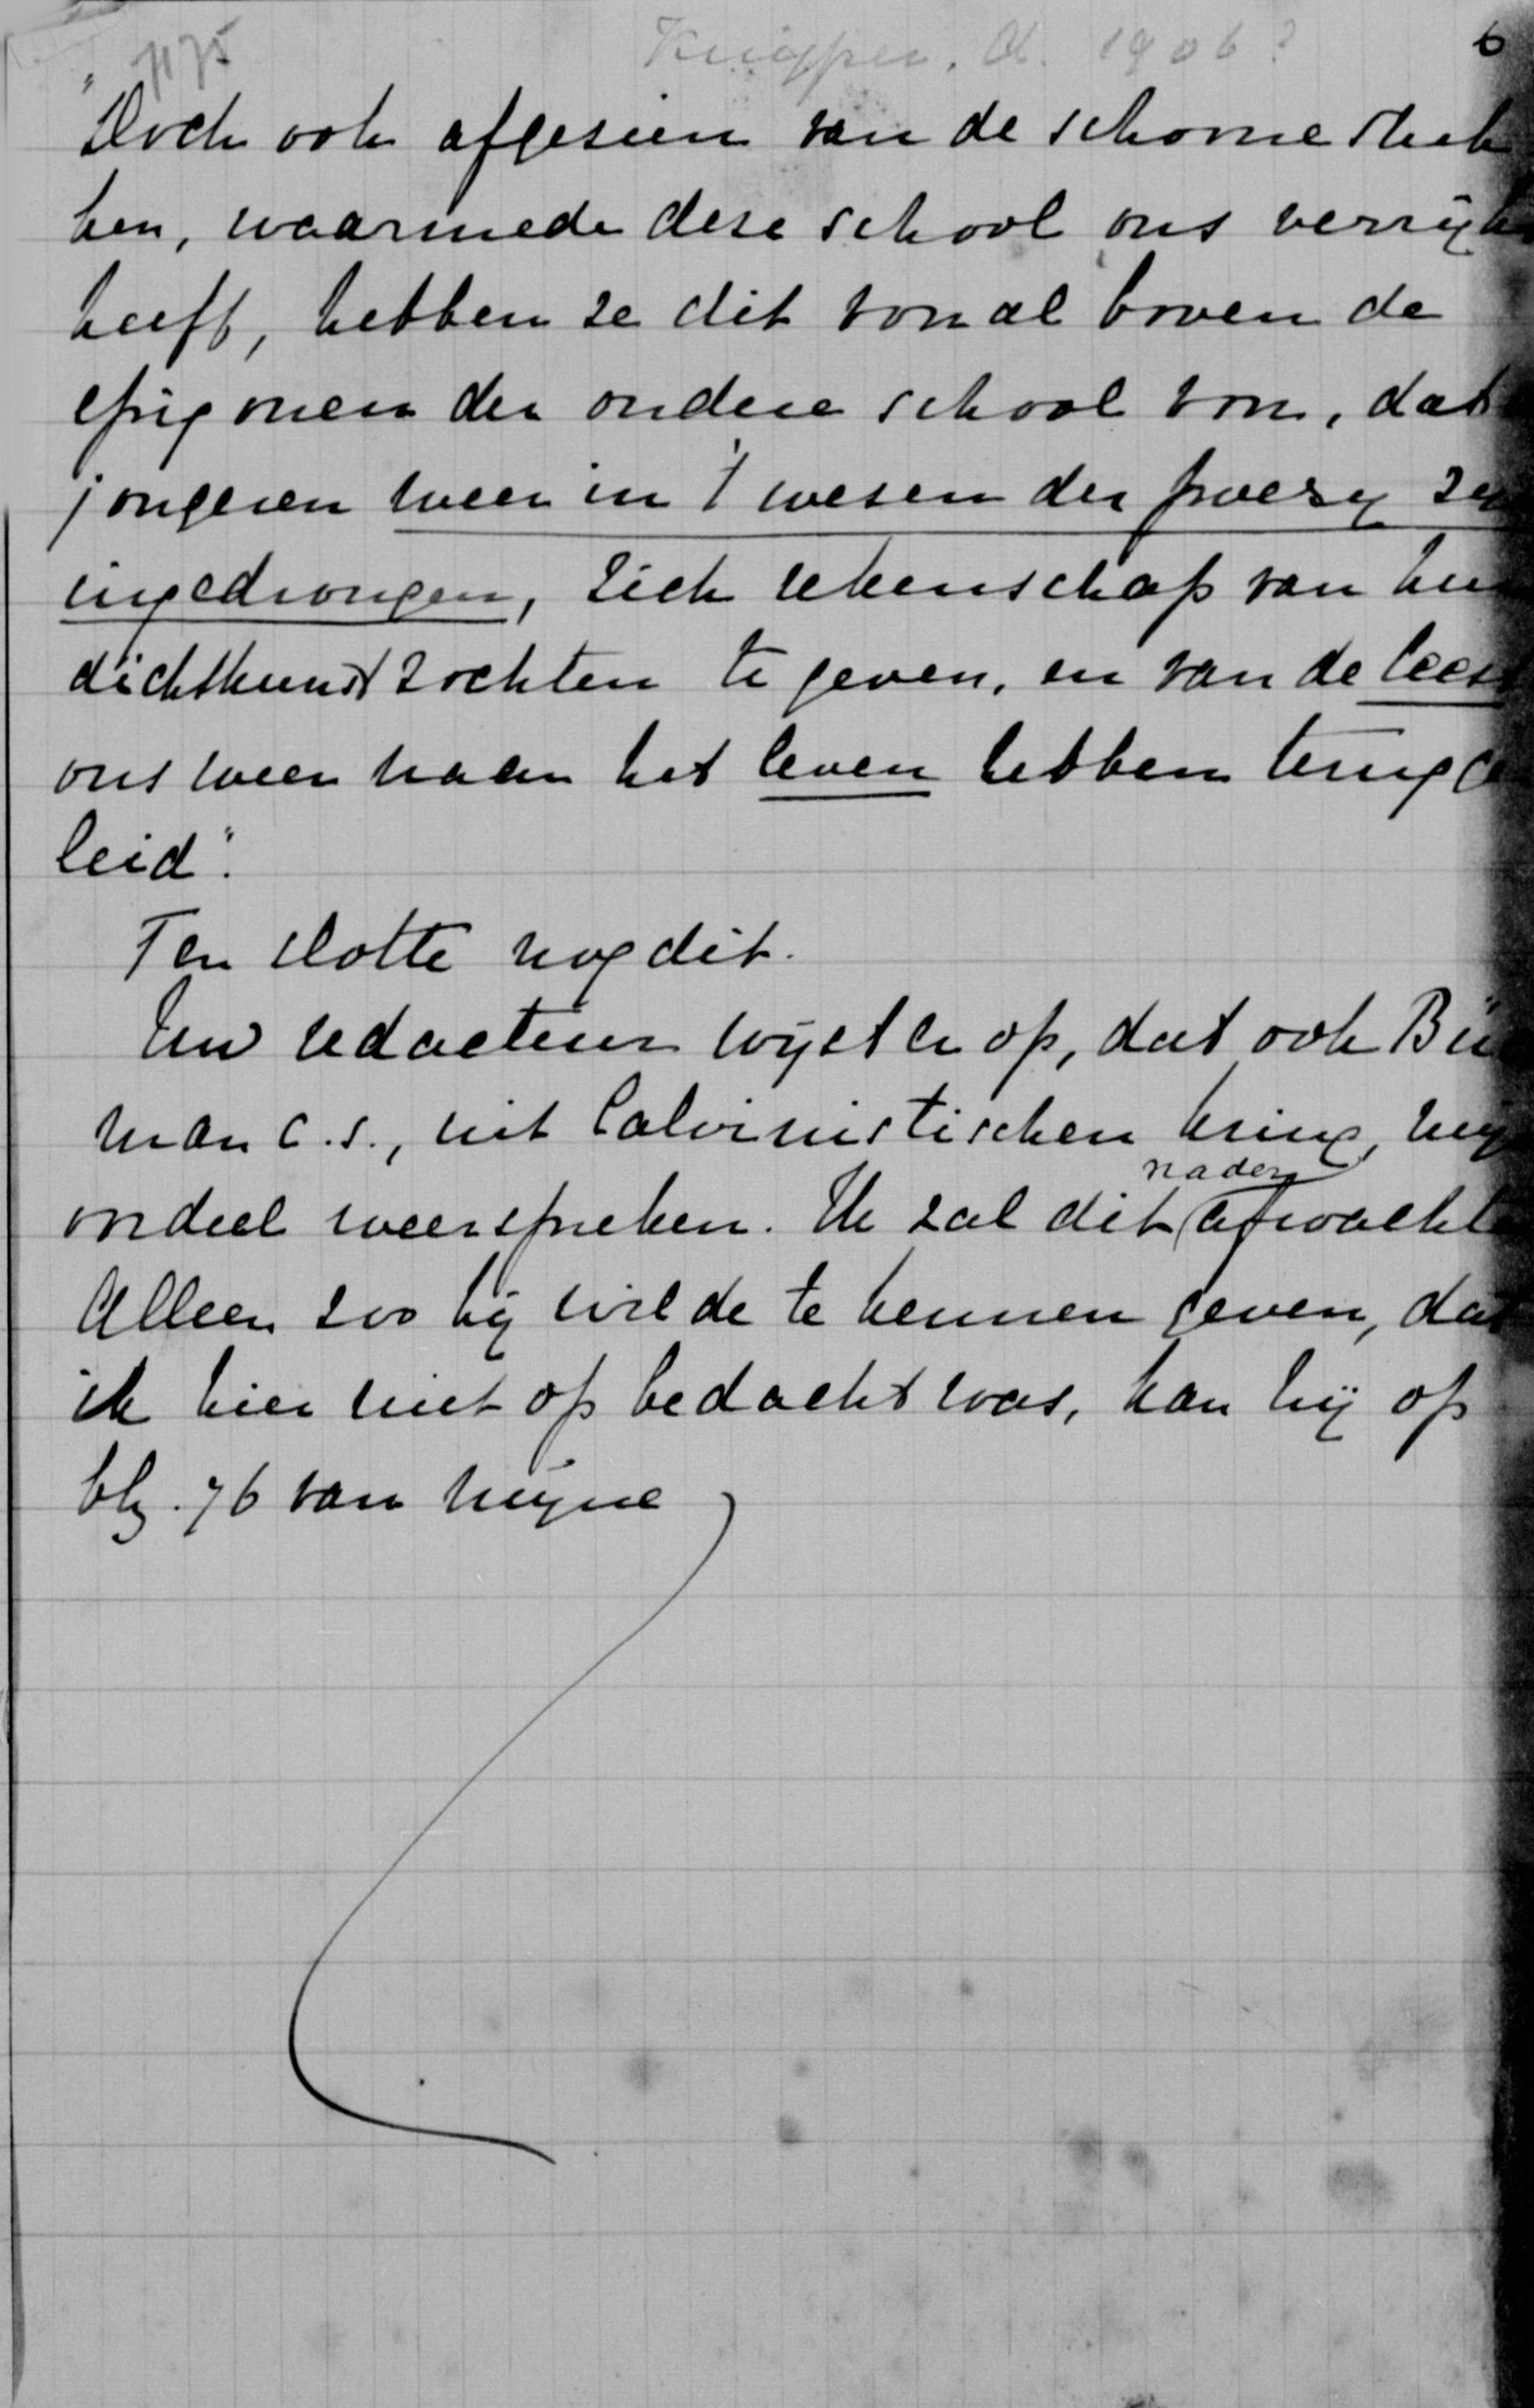 7175 Kuyper, A. 1906? 6
"Doch ook afgezien van de schoone stuk
ken, waarmede deze school ons verrijkt
heeft, hebben ze dit vooral boven de
epigonen der oudere school voor, dat
jongeren weer in 't wezen der poëzy zijn
ingedrongen, zich rekenschap van hun
dichtkunst zochten te geven, en van de leest
ons weer naar het leven hebben terugge
leid".
Ten slotte nog dit.
Uw redacteur wijst er op, dat ook
man c.s., uit Calvinistischen kring, mijn
oordeel weerspreken. Ik zal dit nader afwachten
Alleen zoo hij wilde te kennen geven, dat
ik hier niet op bedacht was, kan hij op
blz. 76 van mijne